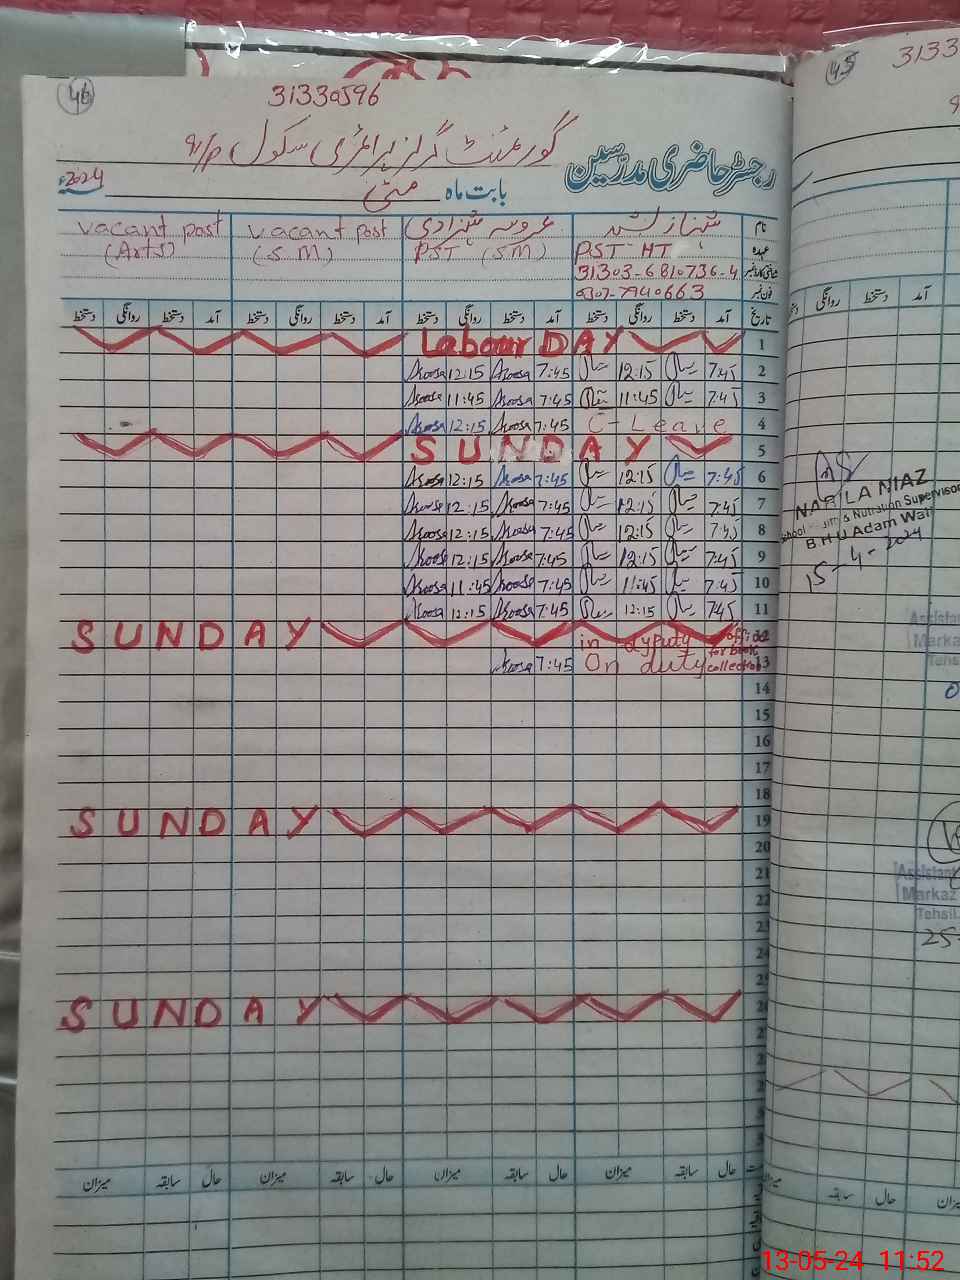 46
31330596
گورنمنٹ گرلز پرائمری سکول 9/P
رجسٹر حاضری مدرسین
بابت ماہ مئی 2024ء
نام شہناز عروسہ شہزادی vacant post vacant post
عہدہ PST HT PST (SM) (S.M) (Arts)
شناختی کارڈ نمبر 31303-6810736-4
فون نمبر 0307-7940663
تاریخ آمد دستخط روانگی دستخط آمد دستخط روانگی دستخط آمد دستخط روانگی دستخط آمد دستخط روانگی دستخط
1 Labour DAY
2 7:45 12:15 7:45 12:15
3 7:45 11:45 7:45 11:45
4 C-Leave 7:45 12:15
5 SUNDAY
6 7:45 12:15 7:45 12:15
7 7:45 12:15 7:45 12:15
8 7:45 12:15 7:45 12:15
9 7:45 12:15 7:45 12:15
10 7:45 11:45 7:45 11:45
11 7:45 12:15 7:45 12:15
12 SUNDAY
in dyputy office
13 On duty for book collection 7:45
14
15
16
17
18
19 SUNDAY
20
21
22
23
24
25
26 SUNDAY
حال سابقہ میزان حال سابقہ میزان حال سابقہ میزان حال سابقہ میزان
45
3133
آمد دستخط روانگی
NAZILA NIAZ
School Health & Nutrition Supervisor
B.H.U Adam Wali
15-4-2024
Assistant
Markaz
Tehsil
Assistant
Markaz
Tehsil
25-
میزان سابقہ حال
13-05-24 11:52